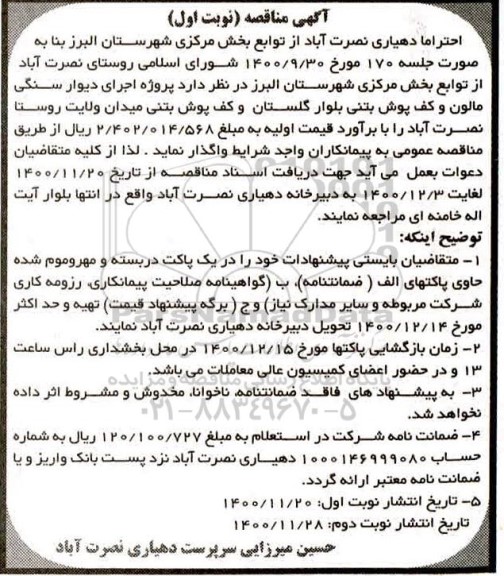 آگهی مناقصه (نوبت اول)
احتراما دهیاری نصرت آباد از توابع بخش مرکزی شهرستان البرز بنا به
صورت جلسه ۱۷۰ مورخ ۱۴۰۰/۹/۳۰ شورای اسلامی روستای نصرت آباد
از توابع بخش مرکزی شهرستان البرز در نظر دارد پروژه اجرای دیوار سنگی
مالون و کف پوش بتنی بلوار گلستان و کف پوش بتنی میدان ولایت روستا
نصرت آباد را با برآورد قیمت اولیه به مبلغ ۲/۴۰۲/۰۱۴/۵۶۸ ریال از طریق
مناقصه عمومی به پیمانکاران واجد شرایط واگذار نماید . لذا از کلیه متقاضیان
دعوات بعمل می آید جهت دریافت اسناد مناقصه از تاریخ ۱۴۰۰/۱۱/۲۰
لغایت ۱۴۰۰/۱۲/۳ به دبیرخانه دهیاری نصرت آباد واقع در انتها بلوار آیت
اله خامنه ای مراجعه نمایند.
توضیح اینکه:
۱- متقاضیان بایستی پیشنهادات خود را در یک پاکت دربسته و مهروموم شده
حاوی پاکتهای الف ( ضمانتنامه)، ب (گواهینامه صلاحیت پیمانکاری، رزومه کاری
شرکت مربوطه و سایر مدارک نیاز) و ج ( برگه پیشنهاد قیمت) تهیه و حد اکثر
مورخ ۱۴۰۰/۱۲/۱۴ تحویل دبیرخانه دهیاری نصرت آباد نمایند.
۲- زمان بازگشایی پاکتها مورخ ۱۴۰۰/۱۲/۱۵ در محل بخشداری راس ساعت
۱۳ و در حضور اعضای کمیسیون عالی معاملات می باشد.
۳- به پیشنهاد های فاقد ضمانتنامه، ناخوانا، مخدوش و مشروط اثر داده
نخواهد شد.
۴- ضمانت نامه شرکت در استعلام به مبلغ ۱۲۰/۱۰۰/۷۲۷ ریال به شماره
حساب ۱۰۰۰۱۴۶۹۹۹۰۸۰ دهیاری نصرت آباد نزد پست بانک واریز و یا
ضمانت نامه معتبر ارائه گردد.
۵- تاریخ انتشار نوبت اول: ۱۴۰۰/۱۱/۲۰
تاریخ انتشار نوبت دوم: ۱۴۰۰/۱۱/۲۸
حسین میرزایی سرپرست دهیاری نصرت آباد
ParsNamadData
پایگاه اطلاع رسانی مناقصه و مزایده
۰۲۱-۸۸۳۴۹۶۷۰-۵